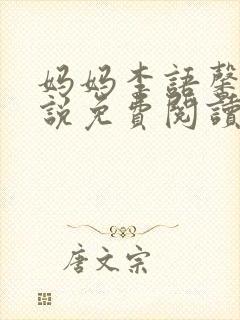 妈妈李語馨
説免費閱讀
唐文宗